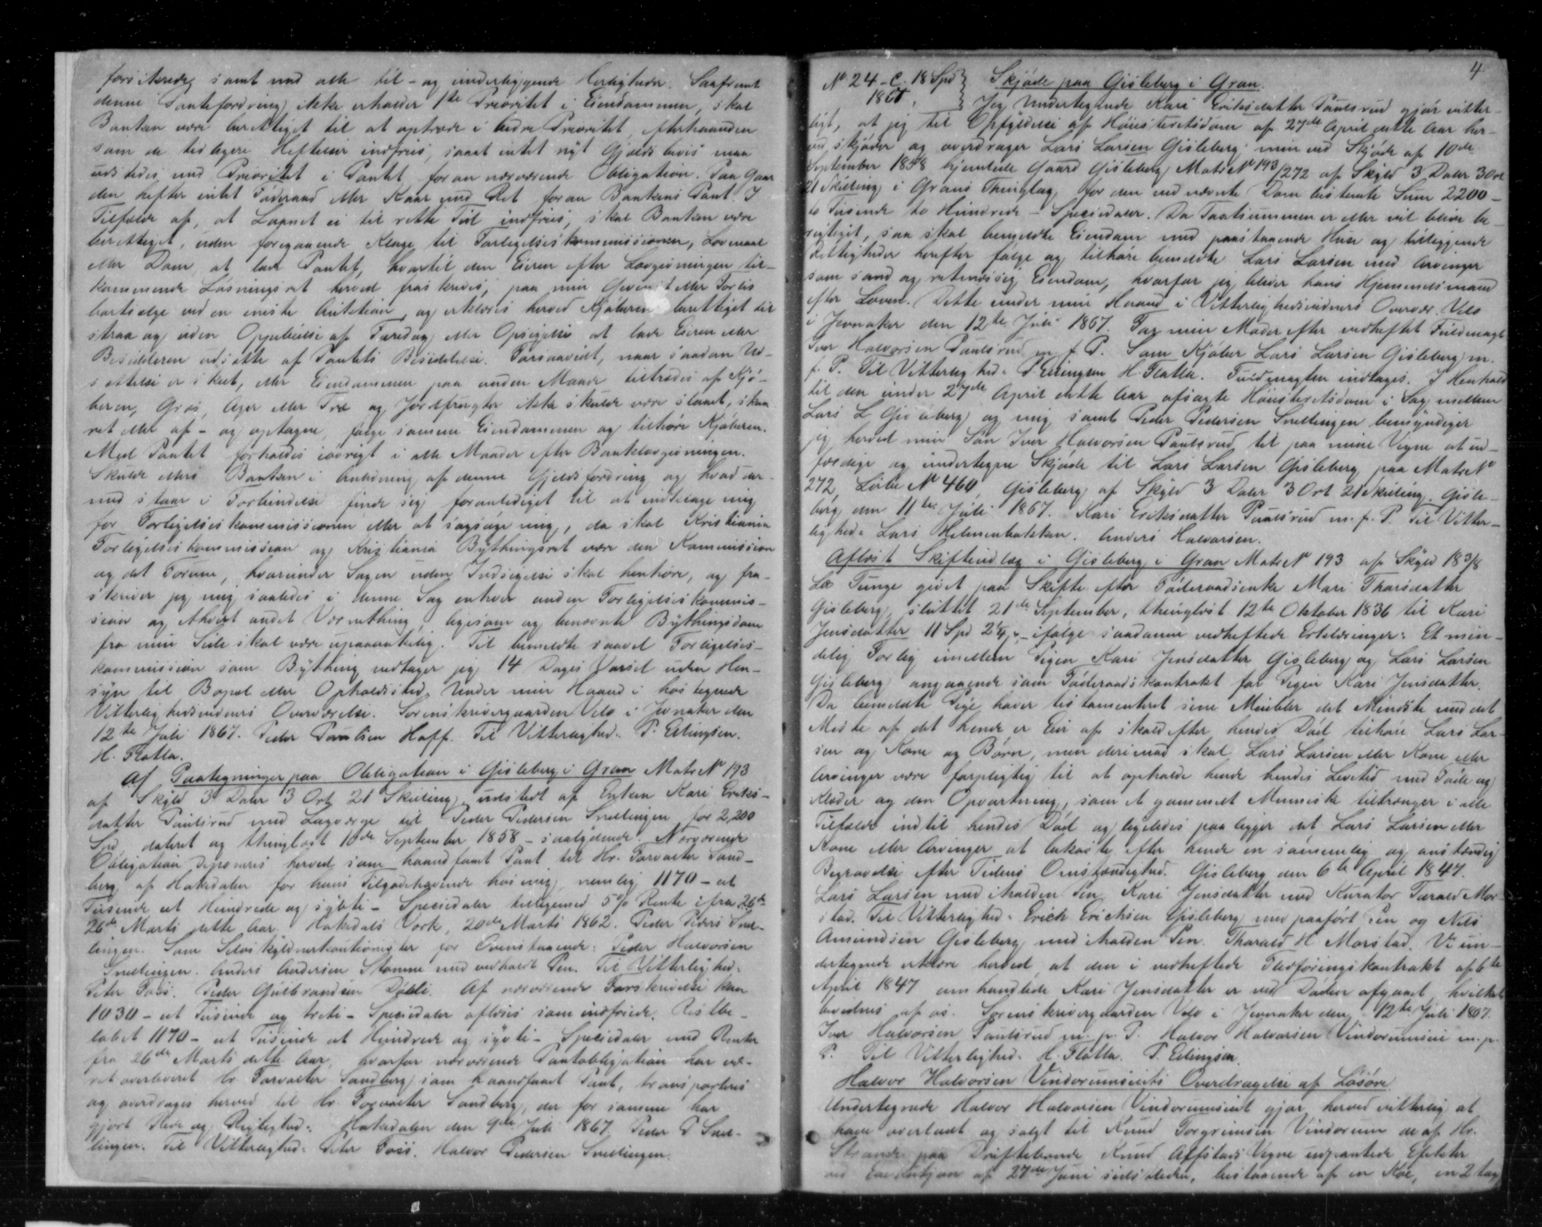 forsikrede, samt med alle til- og underliggende Herligheder. Saafremt
denne Pantefordring ikke erholder 1ste Prioritet i Eiendommen, skal
Banken være berettiget til at optræde i bedre Prioritet, efterhaanden
som de tidligere Heftelser indfries, samt intet nyt Gjeldsbevis maa
udstedes med Prioritet i Pantet foran nærværende Obligation. Paa Gaar-
den hefter intet Føderaad eller Kaar med Ret foran Bankens Pant. I
Tilfælde af, at Laanet ei til rette Tid indfries, skal Banken være
berettiget, uden foregaaende Klage til Forligelseskommissionen, Lovmaal
eller Dom, at lade Pantet, hvortil den Eieren efter Lovgivningen til-
kommende Løsningsret herved fraskrives, paa min Gevinst eller Forlis
bortsælge ved en eneste Auktion og erklæres herved Kjøberen berettiget til
strax og uden Oppebielse af Faredag eller Opsigelse at lade Eieren eller
Besidderen udsætte af Pantets Besiddelse. Forsaavidt, naar saadan Ud-
sættelse er skeet, eller Eiendommen paa anden Maade tiltrædes af Kjø-
beren, Græs, Ager eller Træ og Jordfrugter ikke skulde være slaaet, skaa-
ret eller af- og optagne, følge samme Eiendommen og tilhøre Kjøberen.
Med Pantet forholdes iøvrigt i alle Maader efter Banklovgivningen.
Skulde ellers Banken i Anledning af denne Gjeldsfordring og hvad der-
med staar i Forbindelse finde sig foranlediget til at indklage mig
for Forligelseskommissionen eller at sagsøge mig, da skal Kristiania
Forligelseskommission og Kristiania Bythingsret være den Kommission
og det Forum, hvorunder Sagen uden Indsigelse skal henhøre, og fra-
skriver jeg mig saaledes i denne Sag enhver anden Forligelseskommis-
sion og Athvert andet Værnething ligesom og benævnte Bythingsdom
fra min Side skal være upaaankelig. Til bemeldte saavel Forligelses-
kommission som Bything vedtager jeg 14 Dages Varsel uden Hen-
syn til Bopæl eller Opholdssted. Under min Haand i hoslegende
Vitterlighedsvidners Overværelse. Sorenskrivergaarden Velo i Jevnaker den
12te Juli 1867. Peder Paulsen Hoff. Til Vitterlighed. P. Erlingsen.
H. Flatla.
Af Paategninger paa Obligation i Gisleberg i Gran Matr No 193
af Skyld 3 Daler 3 Ort 21 Skilling, udstedt af Enken Kari Eriks-
datter Paulsrud med Lagværge til Peder Pedersen Snellingen for 2,200
Spd dateret og thinglæst 10de September 1858 - saalydende: Nærværende
Obligation deponeres herved som haandfaaet Pant til Hr. Forvalter Sand-
berg af Hakedalen for hans Tilgodehavende hos mig, nemlig 1170 - et
Tusinde et Hundrede og sytti - Speciedaler tilligemed 5 % Rente i fra 26de
26de Marts dette Aar. Hakedals Værk, 20de Marts 1862. Peder Peders Snel-
lingen. Som Selvskyldnerkautionister for Ovenstaaende: Peder Halvorsen
Snellingen. Anders Andersen Stomne med iholdt Pen. Til Vitterlighed:
Peter Foss. Peder Gulbrandsen Døhli. Af nærværende Forskrivelse kan
1030 - et Tusinde og treti - Speciedaler aflæses som indfriede. Restbe-
løbet 1170 - et Tusinde et Hundrede og sytti - Speciedaler med Renter
fra 26de Marts dette Aar, hvorfor nærværende Pantobligation har væ-
ret overleveret Hr Forvalter Sandberg som haandfaaet Pant, transporteres
og overdrages herved til Hr. Forvalter Sandberg, der for samme har
gjort Rede og Rigtighed. Hakedalen den 9de Juli 1867. Peder P Snel-
lingen. Til Vitterlighed: Peter Foss. Halvor Pedersen Snellingen.
4
No 24 - C. 18 Spd
1867.
Skjøde paa Gisleberg i Gran.
Jeg Undertegnede Kari Eriksdatter Paulsrud gjør vitter-
ligt, at jeg til Opfyldelse af Høiesteretsdom af 27de April dette Aar her-
ved skjøder og overdrager Lars Larsen Gisleberg min ved Skjøde af 10de
September 1858 hjemlede Gaard Gisleberg, Matr No 193/272 af Skyld 3 Daler 3 Ort
21 Skilling i Grans Thinglag for den ved nævnte Dom bestemte Sum 2200 -
to Tusinde to Hundrede - Speciedaler. Da Taalsummen er eller vil blive be-
rigtiget, saa skal bemeldte Eiendom med paastaaende Huse og tilliggende
Rettigheder herefter følge og tilhøre bemeldte Lars Larsen med Arvinger
som sand og retmæssig Eiendom, hvorfor jeg bliver hans Hjemmelsmand
efter Loven. Dette under min Haand i Vitterlighedsvidners Overvær. Velo
i Jevnaker den 12te Juli 1867. For min Moder efter vedheftet Fuldmagt
Iver Halvorsen Paulsrud m. f. P. Som Kjøber Lars Larsen Gisleberg m.
f. P. Til Vitterlighed: P Erlingsen H. Flatla. Fuldmagten indtages. I Henhold
til den under 27de April dette Aar afsagte Høiesteretsdom i Sag mellem
Lars L Gisleberg og mig samt Peder Pedersen Snellingen bemyndiger
jeg herved min Søn Iver Halvorsen Paulsrud til paa mine Vegne at ud-
færdige og undertegne Skjøde til Lars Larsen Gisleberg paa Matr No
272, Løbe No 460 Gisleberg af Skyld 3 Daler 3 Ort 21 Skilling. Gisle-
berg den 11te Juli 1867. Kari Eriksdatter Paulsrud m. f. P. Til Vitter-
lighed: Lars Helmenbakken. Anders Halvorsen.
Aflæst Skifteudlæg i Gisleberg i Gran Matr No 193 af Skyld 18 3/8
Lø Tunge givet paa Skifte efter Føderaadsenke Mari Tharsdatter
Gisleberg, sluttet 21de September, thinglæst 12te Oktober 1836 til Kari
Jensdatter 11 Spd 24 s - ifølge saadanne vedheftede Erklæringer: Et min-
delig Forlig imellem Pigen Kari Jensdatter Gisleberg og Lars Larsen
Gisleberg angaaende som Føderaadskontrakt for Pigen Kari Jensdatter.
Da bemeldte Pige haver testamenteret sine Midler det Mindste med det
Meste af det hende er Eier af skal efter hendes Død tilhøre Lars Lar-
sen og Kone og Børn, men derimod skal Lars Larsen eller Kone eller
Arvinger være forpligtig til at opholde hende hendes Levetid med Føde og
Klæder og den Opvartning, som et gammelt Menneske tiltrænger i alle
Tilfælde indtil hendes Død og ligeledes paaligger det Lars Larsen eller
Kone eller Arvinger at bekoste efter hende en sømmelig og anstændig
Begravelse efter Tidens Omstændighed. Gisleberg den 6te April 1847.
Lars Larsen med iholden Pen, Kari Jensdatter med Kurator Tarald Mor-
stad. Til Vitterlighed: Erick Erichsen Gisleberg med paaført Pen og Nils
Amundsen Gisleberg med iholden Pen. Tharald H Morstad. Vi un-
dertegnede erklære herved, at den i vedheftede Fledføringskontrakt af 6te
April 1847 omhandlede Kari Jensdatter er ved Døden afgaaet, hvilket
bevidnes af os. Sorenskrivergaarden Velo i Jevnaker den 12te Juli 1867.
Iver Halvorsen Paulsrud m. p. P. Halvor Halvorsen Vindorumseie m. p.
P. Til Vitterlighed: H. Flatla. P. Erlingsen.
Halvor Halvorsen Vindorumseiets Overdragelse af Løsøre.
Undertegnede Halvor Halvorsen Vindorumseiet gjør herved vitterlig at
have overladt og solgt til Knud Torgrimsen Vindorum de af Hr.
Strande paa Driftebonde Knud Alfstads Vegne udpantede Effekter
ved Exekution af 27de Juni sidstleden, bestaaende af en Koe, en 2 Aars